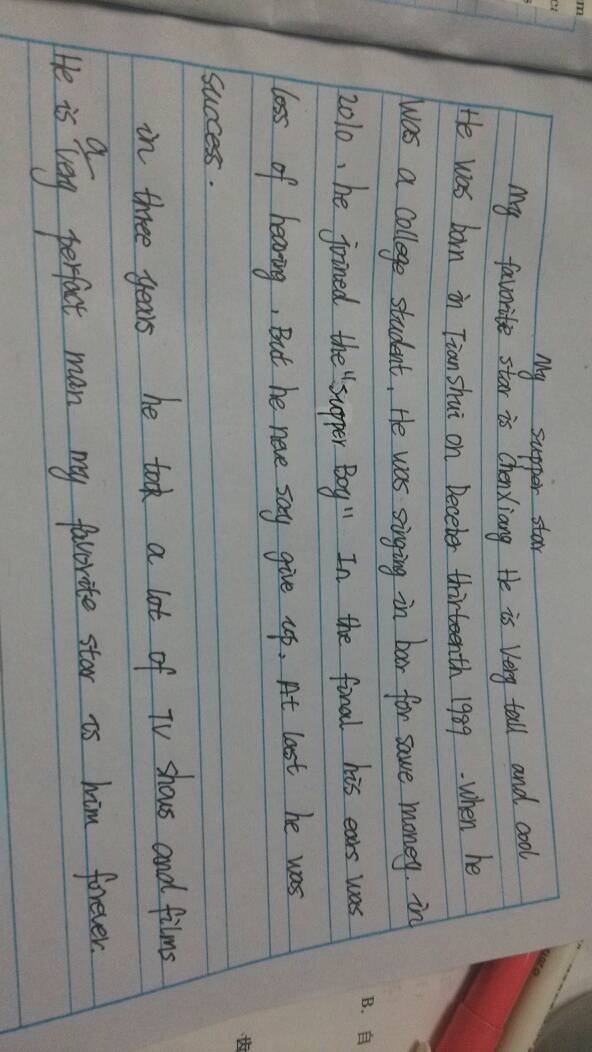 My supper star
My favorite star is ChenXiang He is Very tall and cool
He was born in TianShui on Deceber thirteenth 1989 . when he
Was a college student. He was singing in bar for same money. in
2010 , he joined the "supper Boy" In the final his ears was
loss of hearing . But he neve say give up. At last he was
success.
in three years he took a lot of TV shows and films
He is a very perfact man my favorite star is him forever.
B. 自